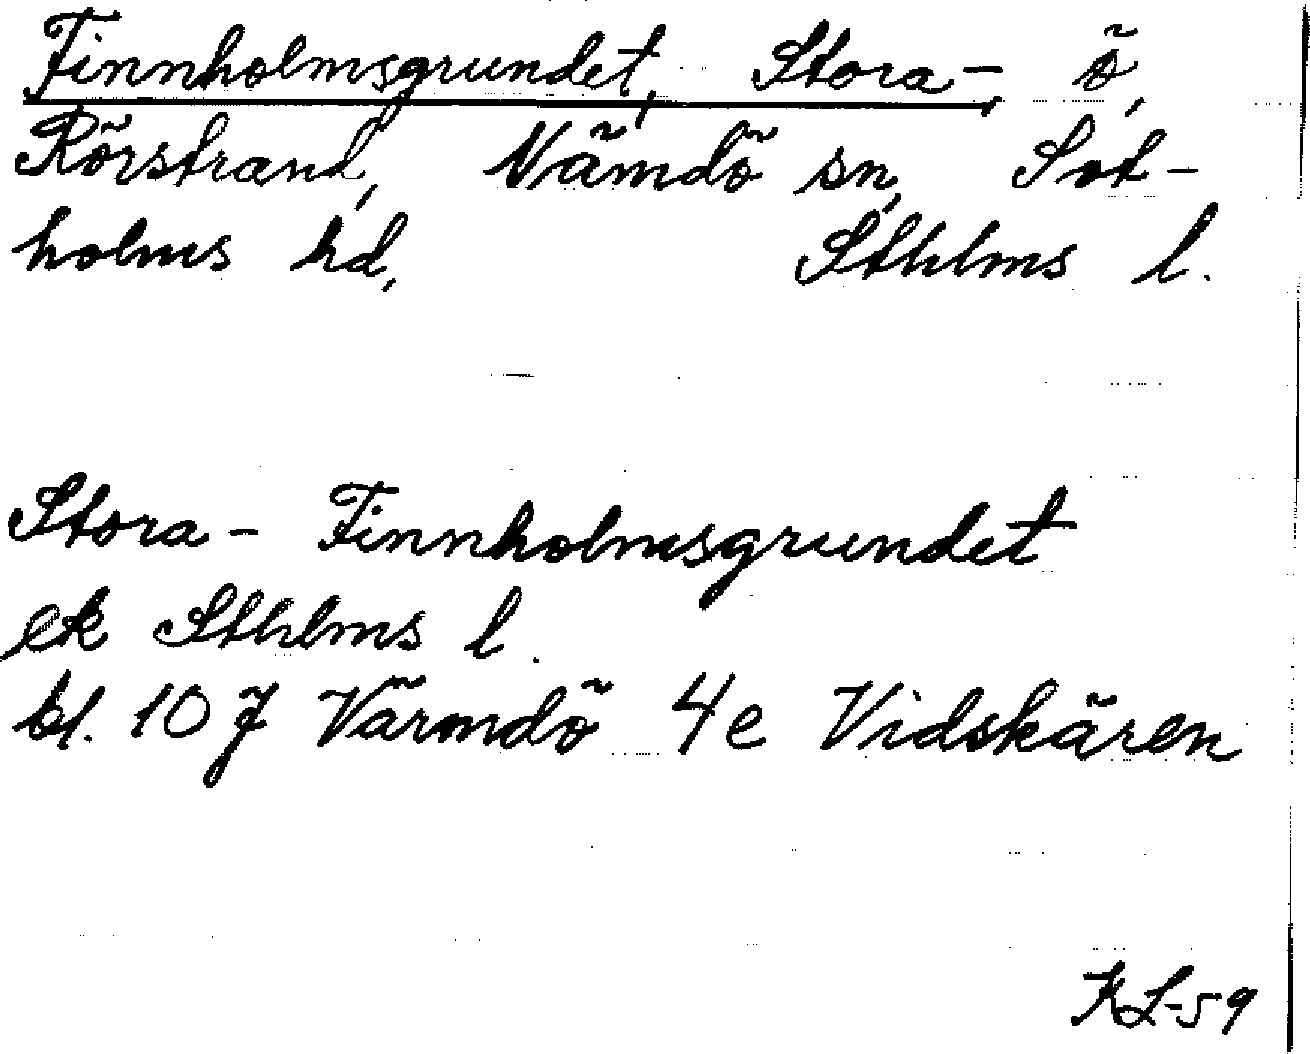 Finnholmsgrundet, Stora-, ö,
Rörstrand, Nämdö sn, Sot-
holms hd, Sthlms l.
Stora- Finnholmsgrundet
ek Sthlms l.
bl. 10 J Värmdö 4e Vidskären
KL-59